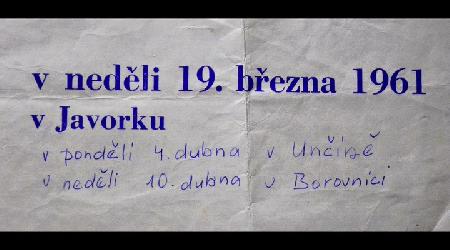 v neděli 19. března 1961
v Javorku
v pondělí 4. dubna v Unčíně
v neděli 10. dubna v Borovnici